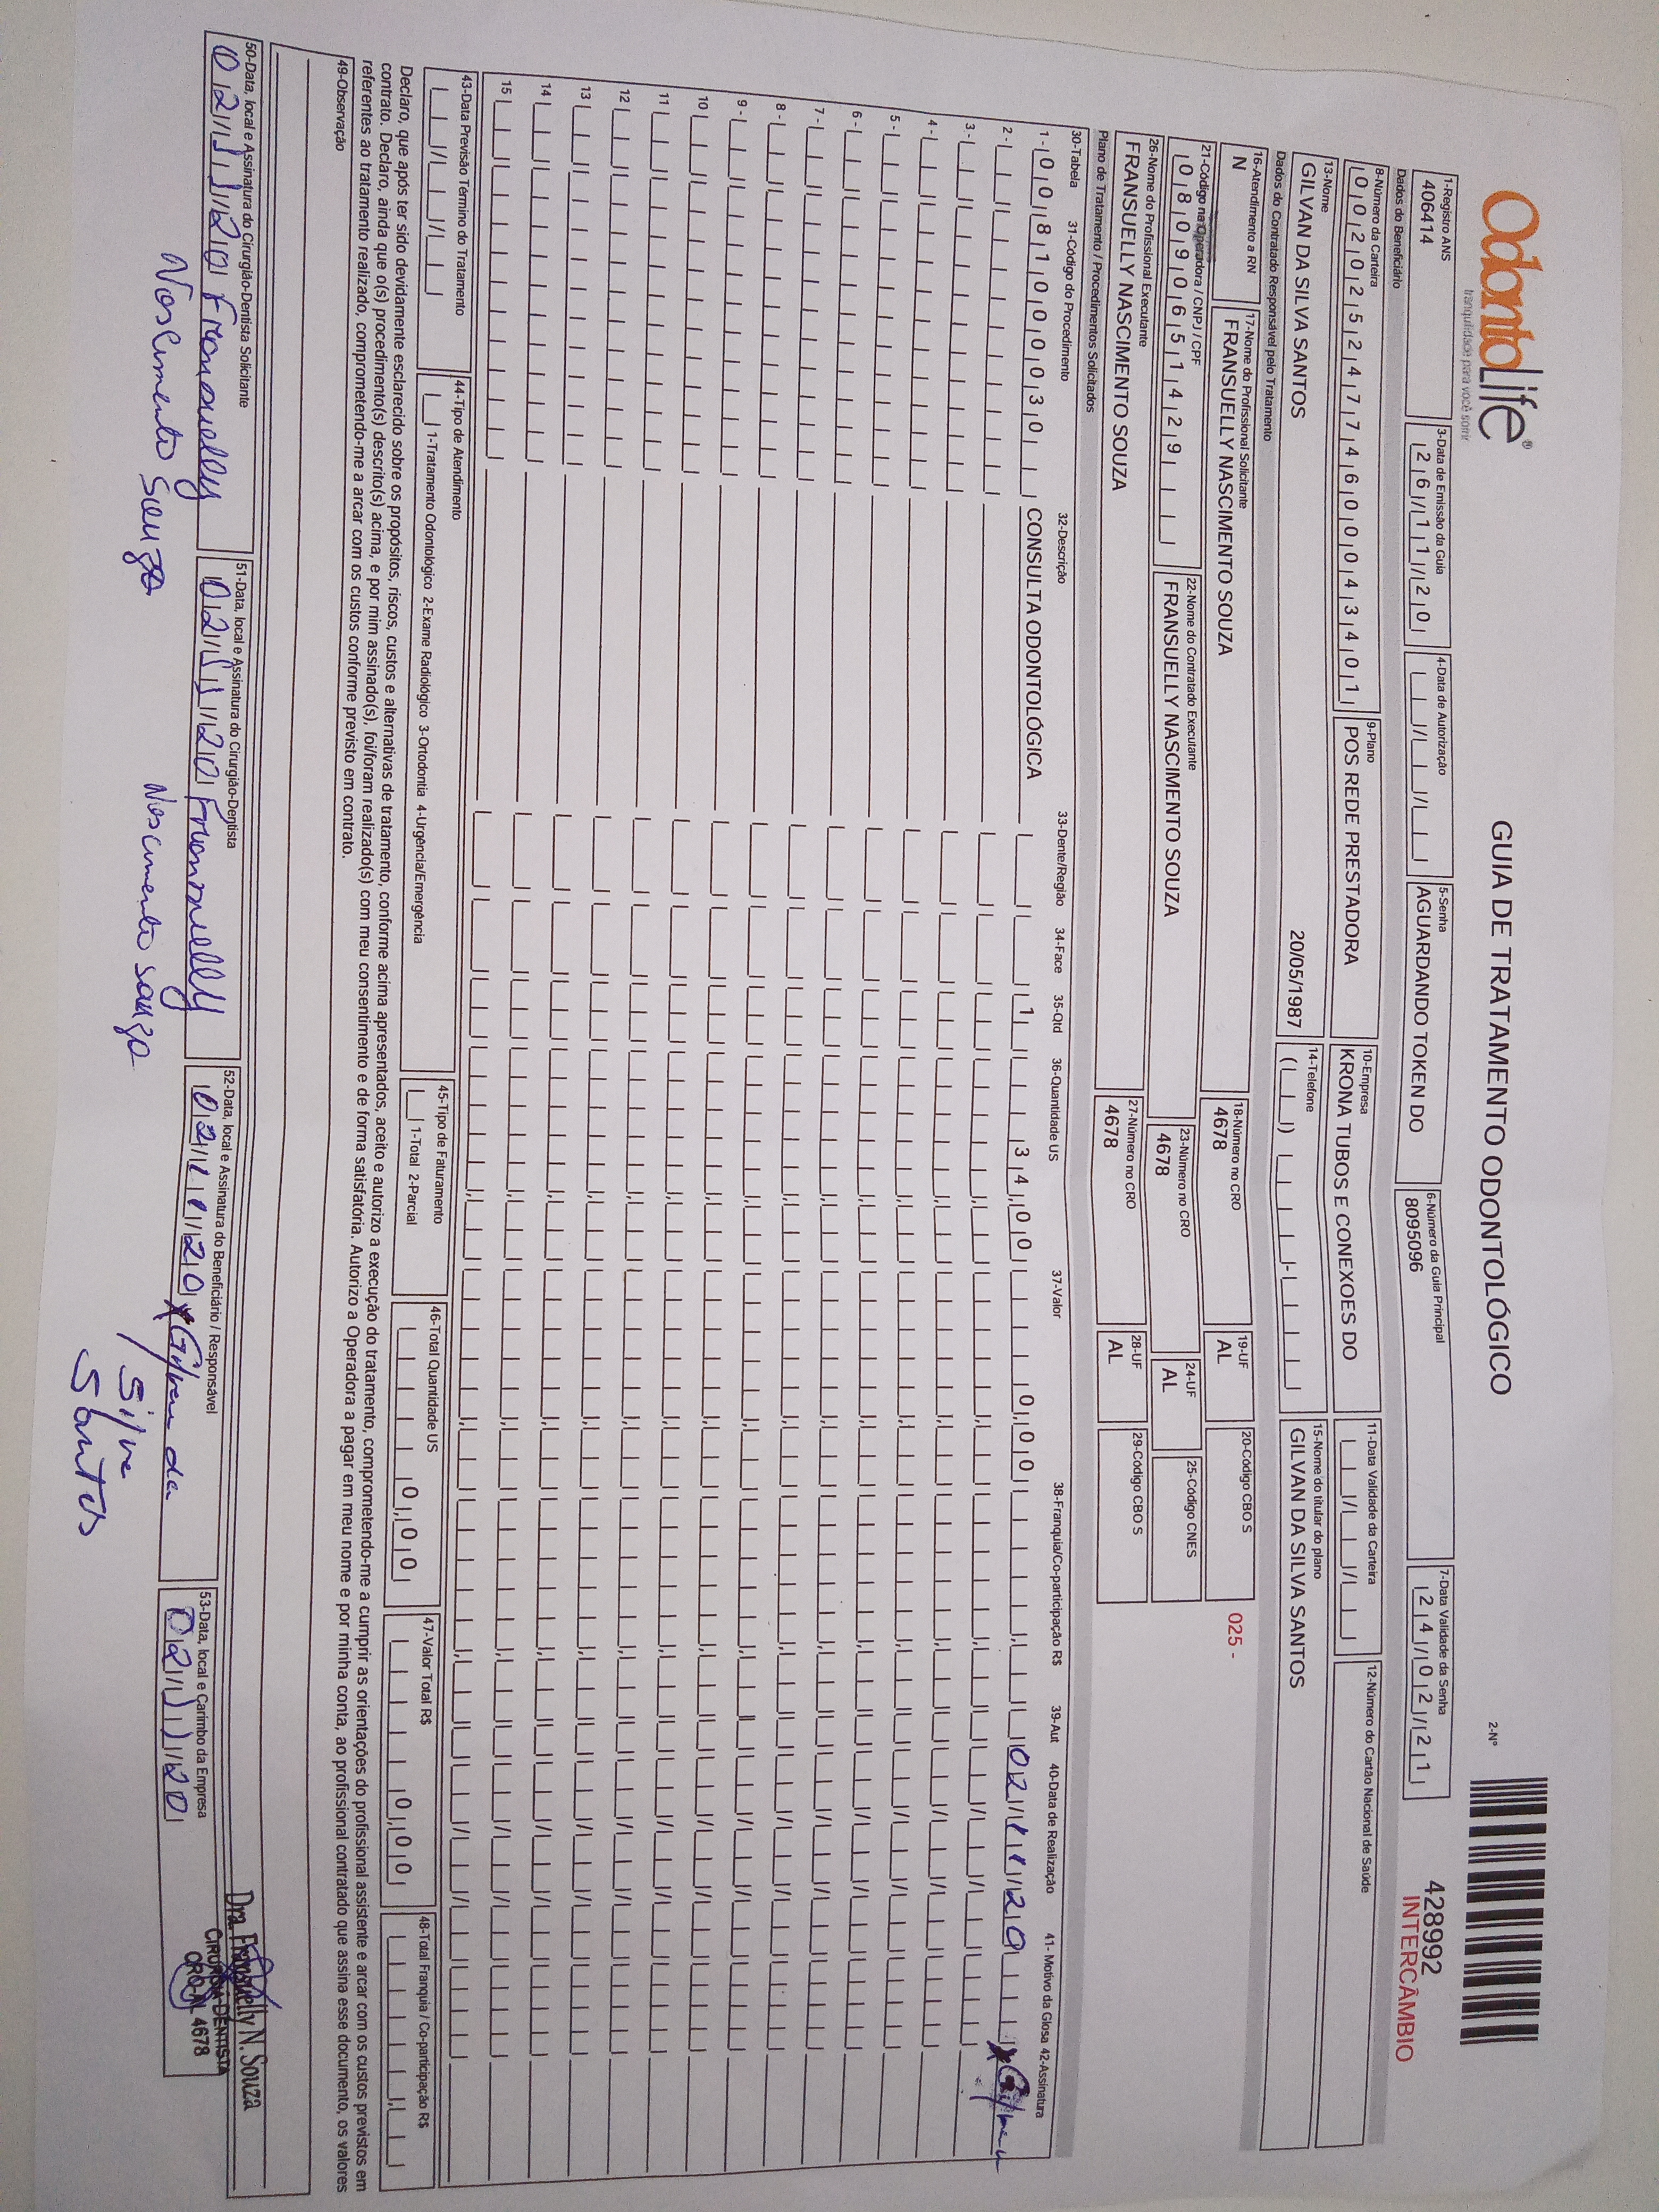 OdontoLife®
tranquilidade para você sorrir
GUIA DE TRATAMENTO ODONTOLÓGICO
2-Nº
428992
INTERCÂMBIO
1-Registro ANS
406414
3-Data de Emissão da Guia
26/11/20
4-Data de Autorização
5-Senha
AGUARDANDO TOKEN DO
6-Número da Guia Principal
8095096
7-Data Validade da Senha
24/02/21
Dados do Beneficiário
8-Número da Carteira
00202524774600043401
9-Plano
POS REDE PRESTADORA
10-Empresa
KRONA TUBOS E CONEXOES DO
11-Data Validade da Carteira
12-Número do Cartão Nacional de Saúde
13-Nome
GILVAN DA SILVA SANTOS 20/05/1987
14-Telefone
15-Nome do titular do plano
GILVAN DA SILVA SANTOS
Dados do Contratado Responsável pelo Tratamento
16-Atendimento a RN
N
17-Nome do Profissional Solicitante
FRANSUELLY NASCIMENTO SOUZA
18-Número no CRO
4678
19-UF
AL
20-Código CBO S
025 -
21-Código na Operadora / CNPJ / CPF
08090651429
22-Nome do Contratado Executante
FRANSUELLY NASCIMENTO SOUZA
23-Número no CRO
4678
24-UF
AL
25-Código CNES
26-Nome do Profissional Executante
FRANSUELLY NASCIMENTO SOUZA
27-Número no CRO
4678
28-UF
AL
29-Código CBO S
Plano de Tratamento / Procedimentos Solicitados
30-Tabela 31-Código do Procedimento 32-Descrição 33-Dente/Região 34-Face 35-Qtd 36-Quantidade US 37-Valor 38-Franquia/Co-participação R$ 39-Aut 40-Data de Realização 41- Motivo da Glosa 42-Assinatura
1- 00 81000030 CONSULTA ODONTOLÓGICA 1 34,00 0,00 02/11/20 x Gilvan
2-
3-
4-
5-
6-
7-
8-
9-
10
11
12
13
14
15
43-Data Previsão Término do Tratamento
44-Tipo de Atendimento
1-Tratamento Odontológico 2-Exame Radiológico 3-Ortodontia 4-Urgência/Emergência
45-Tipo de Faturamento
1-Total 2-Parcial
46-Total Quantidade US
0,00
47-Valor Total R$
0,00
48-Total Franquia / Co-participação R$
Declaro, que após ter sido devidamente esclarecido sobre os propósitos, riscos, custos e alternativas de tratamento, conforme acima apresentados, aceito e autorizo a execução do tratamento, comprometendo-me a cumprir as orientações do profissional assistente e arcar com os custos previstos em
contrato. Declaro, ainda que o(s) procedimento(s) descrito(s) acima, e por mim assinado(s), foi/foram realizado(s) com meu consentimento e de forma satisfatória. Autorizo a Operadora a pagar em meu nome e por minha conta, ao profissional contratado que assina esse documento, os valores
referentes ao tratamento realizado, comprometendo-me a arcar com os custos conforme previsto em contrato.
49-Observação
50-Data, local e Assinatura do Cirurgião-Dentista Solicitante
02/11/20 Fransuelly
Nascimento Souza
51-Data, local e Assinatura do Cirurgião-Dentista
02/11/20 Fransuelly
Nascimento Souza
52-Data, local e Assinatura do Beneficiário / Responsável
02/11/20 x Gilvan da
Silva
Santos
53-Data, local e Carimbo da Empresa
02/11/20
Dra. Fransuelly N. Souza
CIRURGIÃ-DENTISTA
CRO-AL 4678